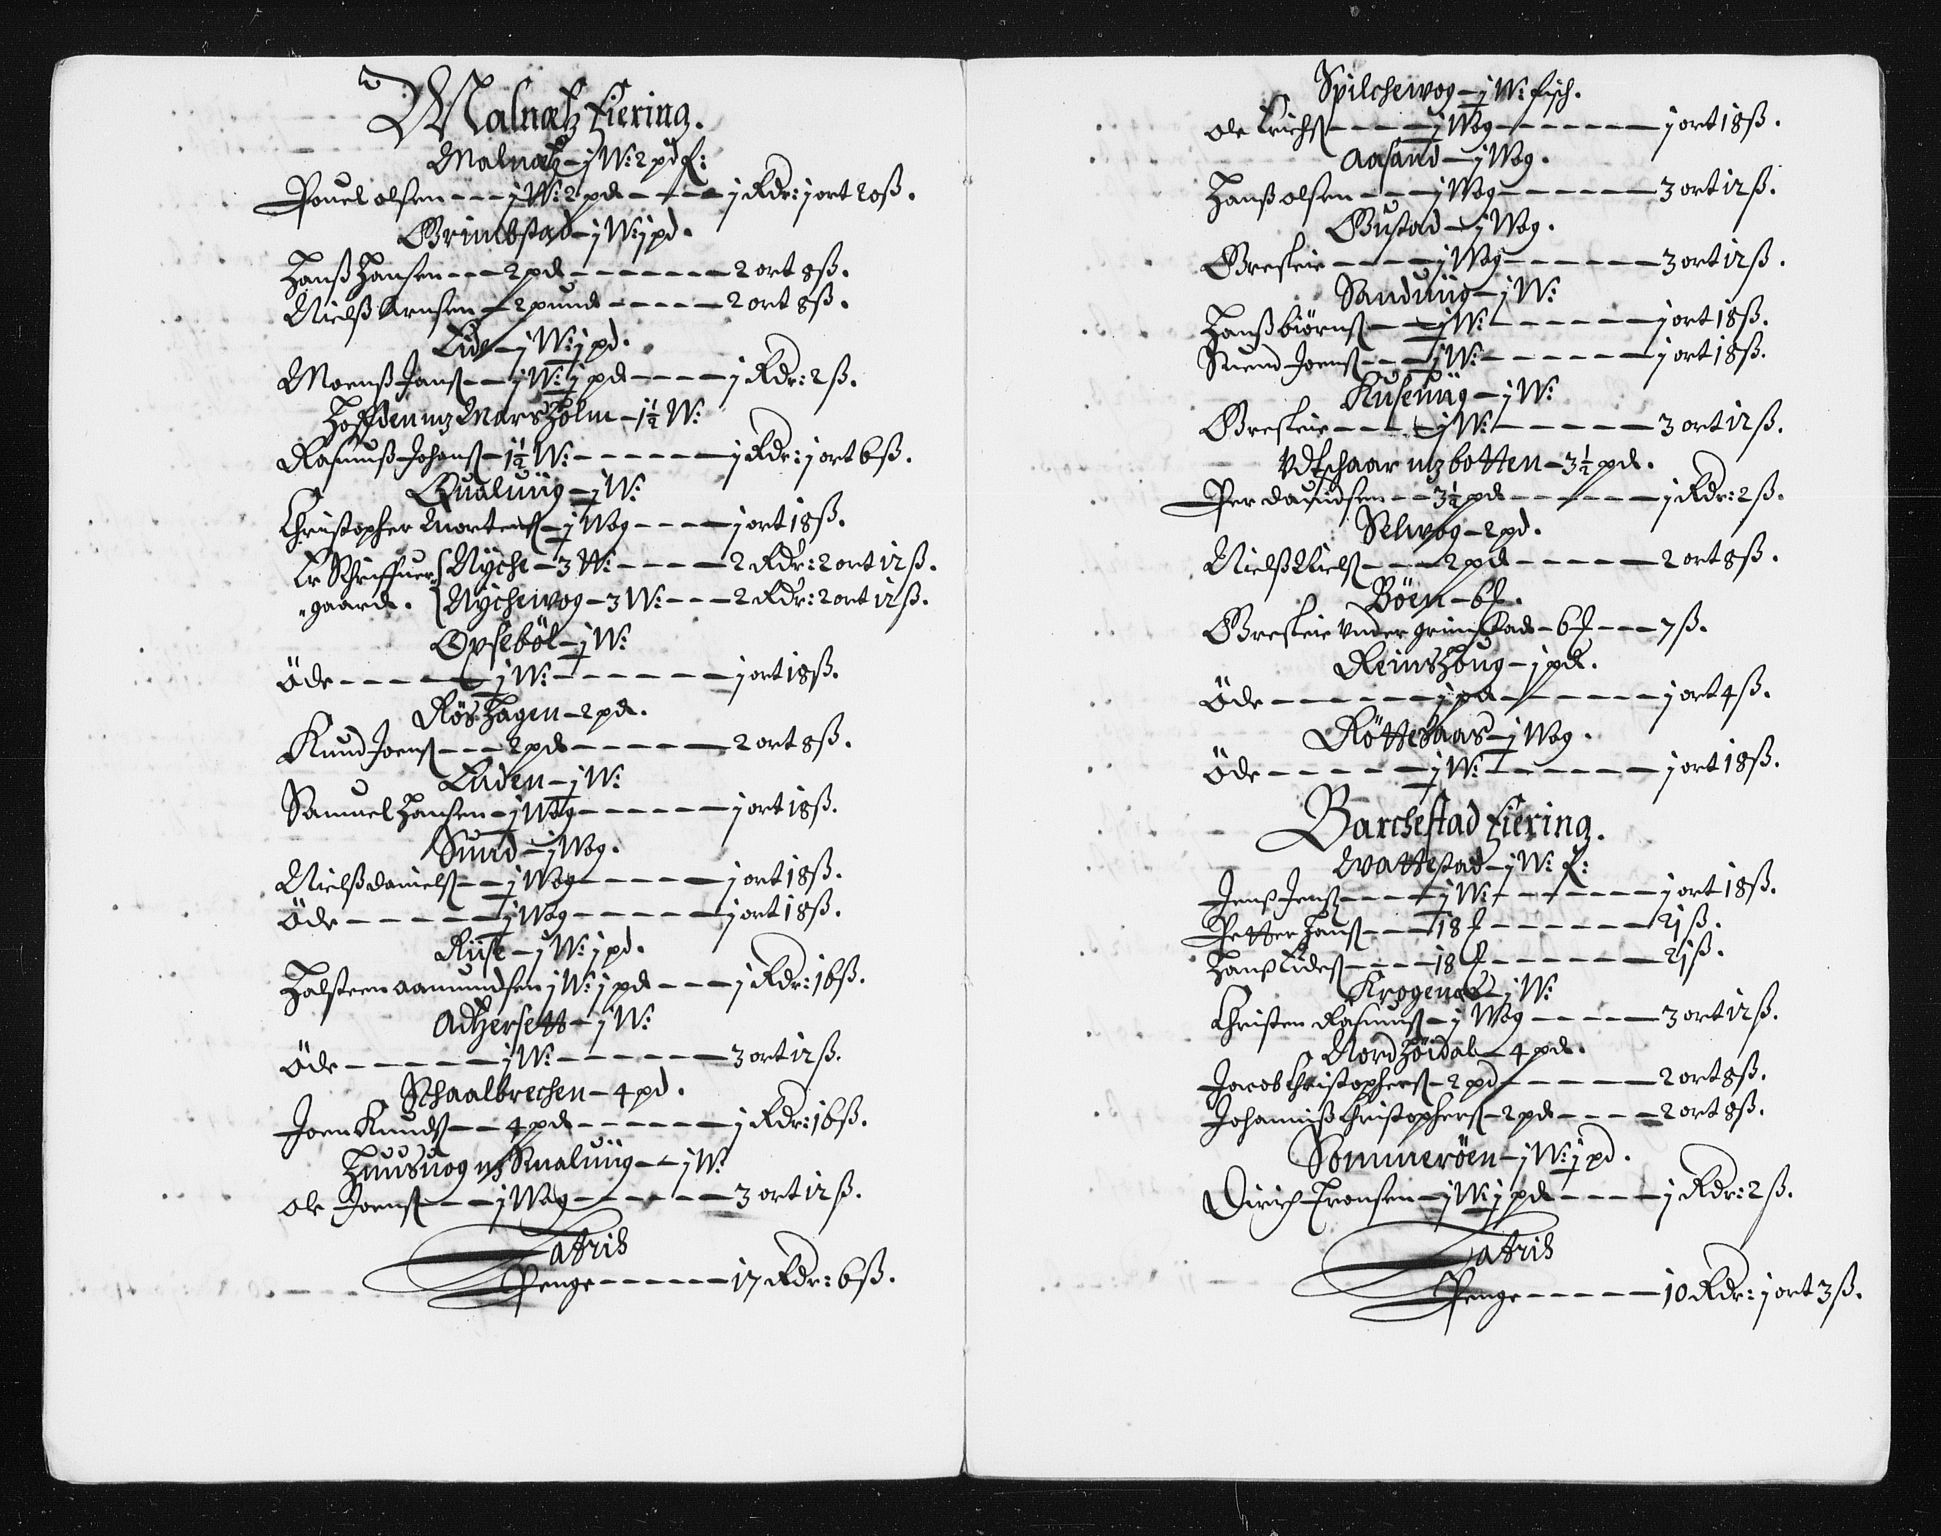 Malnæß Fiering.
Malnæß – j W: 2 pd f:
Pouel olsen – – – j W: 2 pd – – – j Rdr: j ort 20 ß.
Grimbstad – j W: j pd.
Hanß Hansen – – – 2 pd – – – – – – 2 ort 8 ß.
Nielß Arnsen – 2 pund – – – – – 2 ort 8 ß.
Lide – j W: j pd.
Moenß Jonß – – j W: j pd – – – – j Rdr: 2 ß.
Hofden mz Mars Holm – 1½ W:
Rasmuß Johanß – 1½ W: – – – – – – j Rdr: j ort 6 ß.
Qualuiig – j W:
Christopher Mortens – j Wog – – – – j ort 18 ß.
Er Schriffuer { Nyche – 3 W: – – – – 2 Rdr: 2 ort 12 ß.
gaard. { Nycheivog – 3 W: – – – 2 Rdr: 2 ort 12 ß.
Opseböl – j W:
Öde – – – – – j W: – – – – – – j ort 18 ß.
Rös Hagen – 2 pd.
Knud Joenß – – – 2 pd – – – – – – 2 ort 8 ß.
Eiden – j W:
Samuel Hansen – j Wog – – – – – – j ort 18 ß.
Sund – j Wog.
Nielß danielß – – j Wog – – – – – j ort 18 ß.
Öde – – – – – – j Wog – – – – – j ort 18 ß.
Riise – j W: j pd.
Halsteen aamundsen j W: j pd – – – j Rdr: 16 ß.
Adhersett – j W:
Öde – – – – – – j W: – – – – – – 3 ort 12 ß.
Schaalbrechen – 4 pd.
Joen Knudß – – 4 pd – – – – – – j Rdr: 16 ß.
Huusuog mz Sualuiig – j W:
Ole Joenß – – – j Wog – – – – – – 3 ort 12 ß.
Latris
Penge – – – – – – 17 Rdr: 6 ß.
Spilcheivog – j W: fisch.
Ole Erichß – – – – – j Wog – – – – – – – j ort 18 ß.
Aasand – j Wog.
Hanß olsen – – – – j Wog – – – – – – 3 ort 12 ß.
Gustad – j Wog.
Gresleie – – – – – j Wog – – – – – – 3 ort 12 ß.
Sanduiig – j W:
Hanß biörnß – – – j W: – – – – – – j ort 18 ß.
Suend Joenß – – – – j W: – – – – – – j ort 18 ß.
Kuseuiig – j W:
Gresleie – – – – – j W: – – – – – – 3 ort 12 ß.
Vdtschaar mz botten – 3½ pd.
Per dauidsen – – 3½ pd – – – – – – j Rdr: 2 ß.
Selwog – 2 pd.
Nielß Nielß – – – – 2 pd – – – – – – 2 ort 8 ß.
Böen – 6 f.
Gresleie vnder grimstad – 6 f – – – 7 ß.
Reins Houg – j pd.
Öde – – – – – – – j pd – – – – – – j ort 4 ß.
Rötteaas – j Wog.
Öde – – – – – – – j W: – – – – – – j ort 18 ß.
Barchestad Fiering.
Wattestad – j W: f:
Jenß Jenß – – – – – j W: – – – – – – j ort 18 ß.
Petter Hanß – – – 18 f – – – – – – – 21 ß.
Hanß Eideß – – – – 18 f – – – – – – – 21 ß.
Krogenæs – j W:
Christen Rasmuß – j Wog – – – – – 3 ort 12 ß.
Nord Höidal – 4 pd.
Jacob Christopherß – 2 pd – – – – – – 2 ort 8 ß.
Johanniß Christopherß – 2 pd – – – – 2 ort 8 ß.
Sommeröen – j W: j pd.
Dirich Tronsen – j W: j pd – – – – j Rdr: 2 ß.
Latris
Penge – – – – – – 10 Rdr: j ort 3 ß.